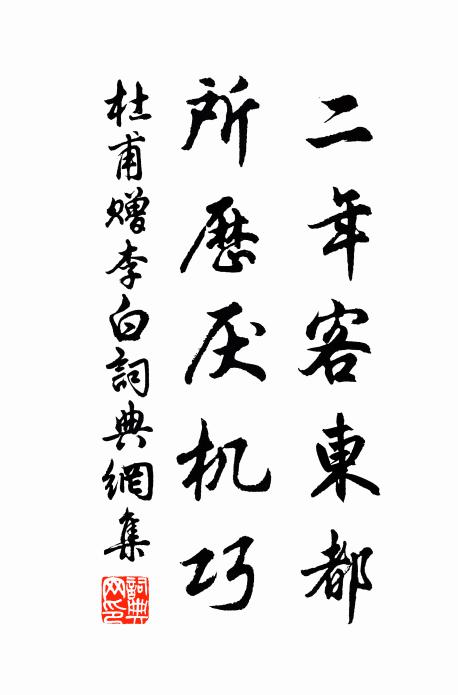 二年客東都
所歷厌机巧
杜甫贈李白詞典網集
詞典網印